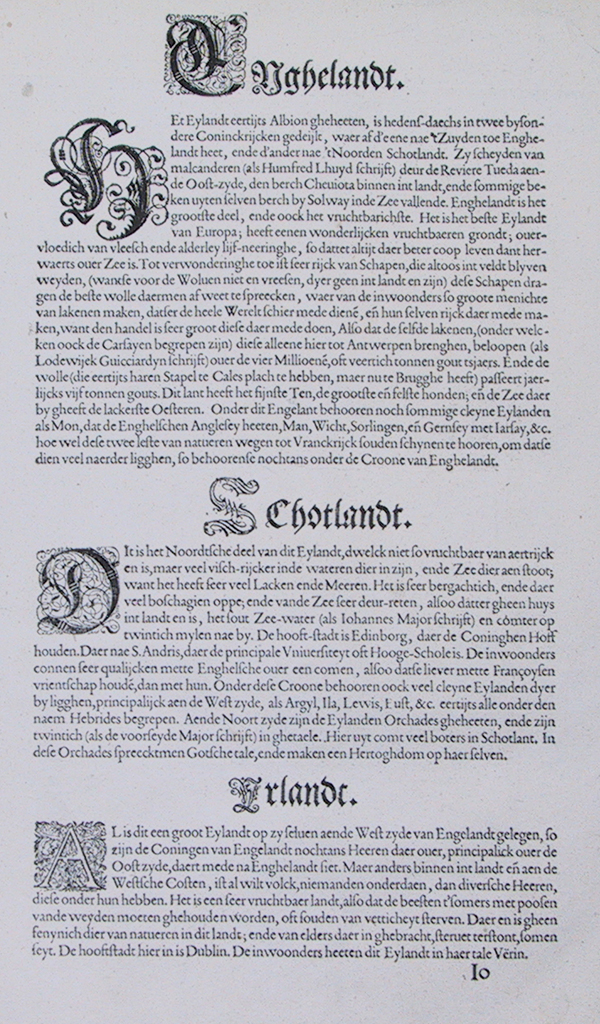 ENghelandt.
HEt Eylandt eertijts Albion gheheeten, is hedens-daechs in twee byson-
dere Coninckrijcken gedeijlt, waer af d'eene nae 't Zuyden toe Enghe-
landt heet, ende d'ander nae 't Noorden Schotlandt. Zy scheyden van
malcanderen (als Humfred Lhuyd schrijft) deur de Reviere Tueda aen-
de Oost-zyde, den berch Cheuiota binnen int landt, ende sommige be-
ken uyten selven berch by Solway inde Zee vallende. Enghelandt is het
grootste deel, ende oock het vruchtbarichste. Het is het beste Eylandt
van Europa; heeft eenen wonderlijcken vruchtbaeren grondt; ouer-
vloedich van vleesch ende alderley lijf-neeringhe, so dattet altijt daer beter coop leven dant her-
waerts ouer Zee is. Tot verwonderinghe toe ist seer rijck van Schapen, die altoos int veldt blyven
weyden, (wantse voor de Woluen niet en vreesen, dyer geen int landt en zijn) dese Schapen dra-
gen de beste wolle daermen af weet te spreecken, waer van de inwoonders so groote menichte
van lakenen maken, datser de heele Werelt schier mede dienē, eñ hun selven rijck daer mede ma-
ken, want den handel is seer groot diese daer mede doen, Also dat de selfde lakenen, (onder welc-
ken oock de Carsayen begrepen zijn) diese alleene hier tot Antwerpen brenghen, beloopen (als
Lodewijck Guicciardyn schrijft) ouer de vier Millioenē, oft veertich tonnen gout tsjaers. Ende de
wolle (die eertijts haren Stapel te Cales plach te hebben, maer nu te Brugghe heeft) passeert jaer-
lijcks vijf tonnen gouts. Dit lant heeft het fijnste Ten, de grootste eñ felste honden; eñ de Zee daer
by gheeft de lackerste Oesteren. Onder dit Engelant behooren noch sommige cleyne Eylanden
als Mon, dat de Enghelschen Anglesey heeten, Man, Wicht, Sorlingen, eñ Gernsey met Iarsay, &c.
hoe wel dese twee leste van natueren wegen tot Vranckrijck souden schynen te hooren, om datse
dien veel naerder ligghen, so behoorense nochtans onder de Croone van Enghelandt.
SChotlandt.
DIt is het Noordtsche deel van dit Eylandt, dwelck niet so vruchtbaer van aertrijck
en is, maer veel visch-rijcker inde wateren dier in zijn, ende Zee dier aen stoot;
want het heeft seer veel Lacken ende Meeren. Het is seer bergachtich, ende daer
veel boschagien oppe; ende vande Zee seer deur-reten, alsoo datter gheen huys
int landt en is, het sout Zee-water (als Iohannes Major schrijft) en cōmter op
twintich mylen nae by. De hooft-stadt is Edinborg, daer de Coninghen Hoff
houden. Daer nae S. Andris, daer de principale Vniuersiteyt oft Hooge-Schole is. De inwoonders
connen seer qualijcken mette Enghelsche ouer een comen, alsoo datse liever mette Françoysen
vrientschap houdē, dan met hun. Onder dese Croone behooren oock veel cleyne Eylanden dyer
by ligghen, principalijck aen de West zyde, als Argyl, Ila, Lewis, Eust, &c. eertijts alle onder den
naem Hebrides begrepen. Aende Noort zyde zijn de Eylanden Orchades gheheeten, ende zijn
twintich (als de voorseyde Major schrijft) in ghetaele. Hier uyt comt veel boters in Schotlant. In
dese Orchades spreecktmen Gotsche tale, ende maken een Hertoghdom op haer selven.
Yrlandt.
AL is dit een groot Eylandt op zy seluen aende West zyde van Engelandt gelegen, so
zijn de Coningen van Engelandt nochtans Heeren daer ouer, principalick ouer de
Oost zyde, daert mede na Enghelandt siet. Maer anders binnen int landt eñ aen de
Westsche Costen, ist al wilt volck, niemanden onderdaen, dan diversche Heeren,
diese onder hun hebben. Het is een seer vruchtbaer landt, also dat de beesten t'somers met poosen
vande weyden moeten ghehouden worden, oft souden van vetticheyt sterven. Daer en is gheen
fenynich dier van natueren in dit landt; ende van elders daer in ghebracht, steruet terstont, somen
seyt. De hooftstadt hier in is Dublin. De inwoonders heeten dit Eylandt in haer tale Vērin.
Io